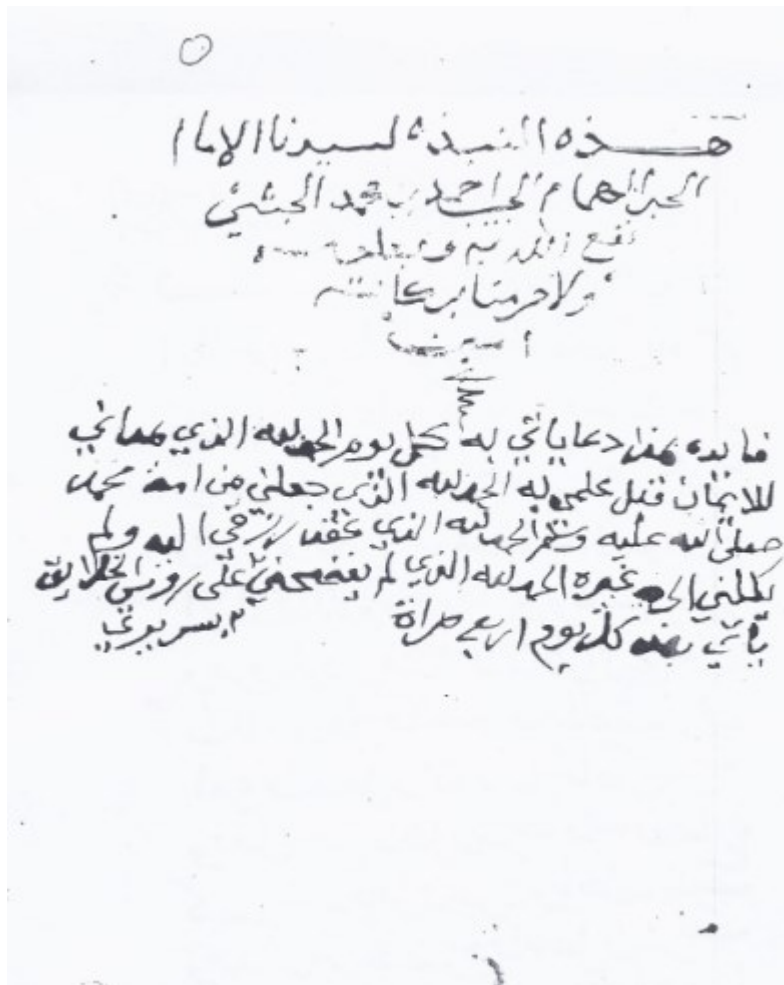 هذه النبذة لسيدنا الاما
الحبر الهمام الحبيب احمد بن محمد الحبشي
نفع الله به وبعلومه
ولا حرمنا بركاته
امين
فايده هذا دعا ياتي به كل يوم الحمد لله الذي هداني
للايمان قبل علمي به الحمد لله الذي جعلني من امة محمد
صلى الله عليه وسلم الحمد لله الذي رزقي اليه ولم
يكلني الى غيره الحمد لله الذي لم يفضحني على روس الخلايق
ياتي بهذه كل يوم اربع مراة